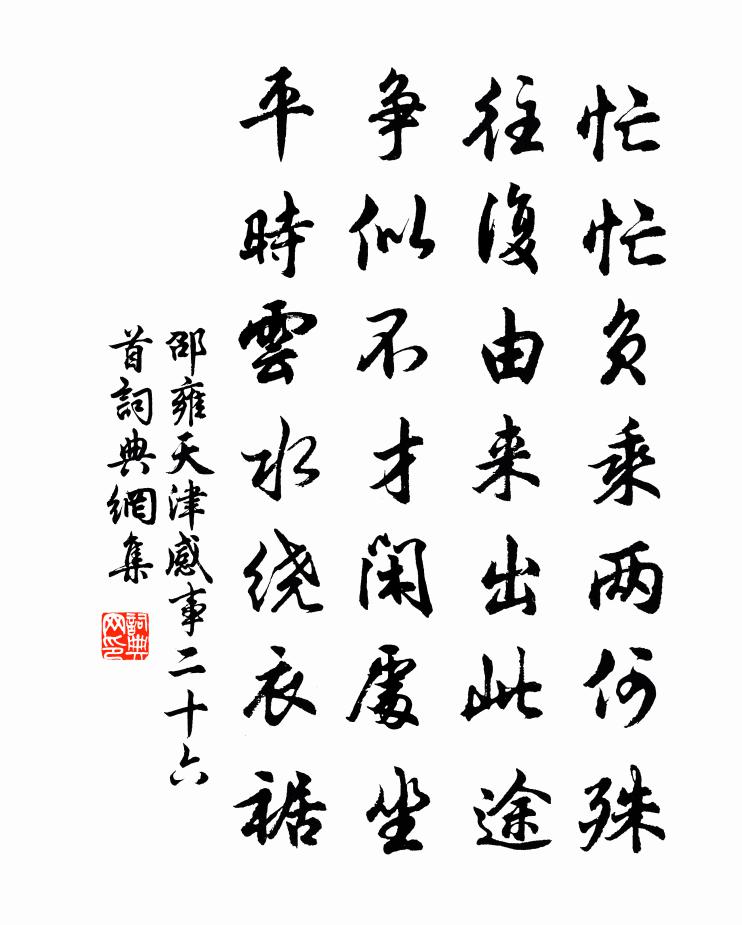 忙忙负乘两何殊
往復由来出此途
争似不才闲處坐
平時雲水绕衣裾
邵雍天津感事二十六
首詞典網集
詞典网印